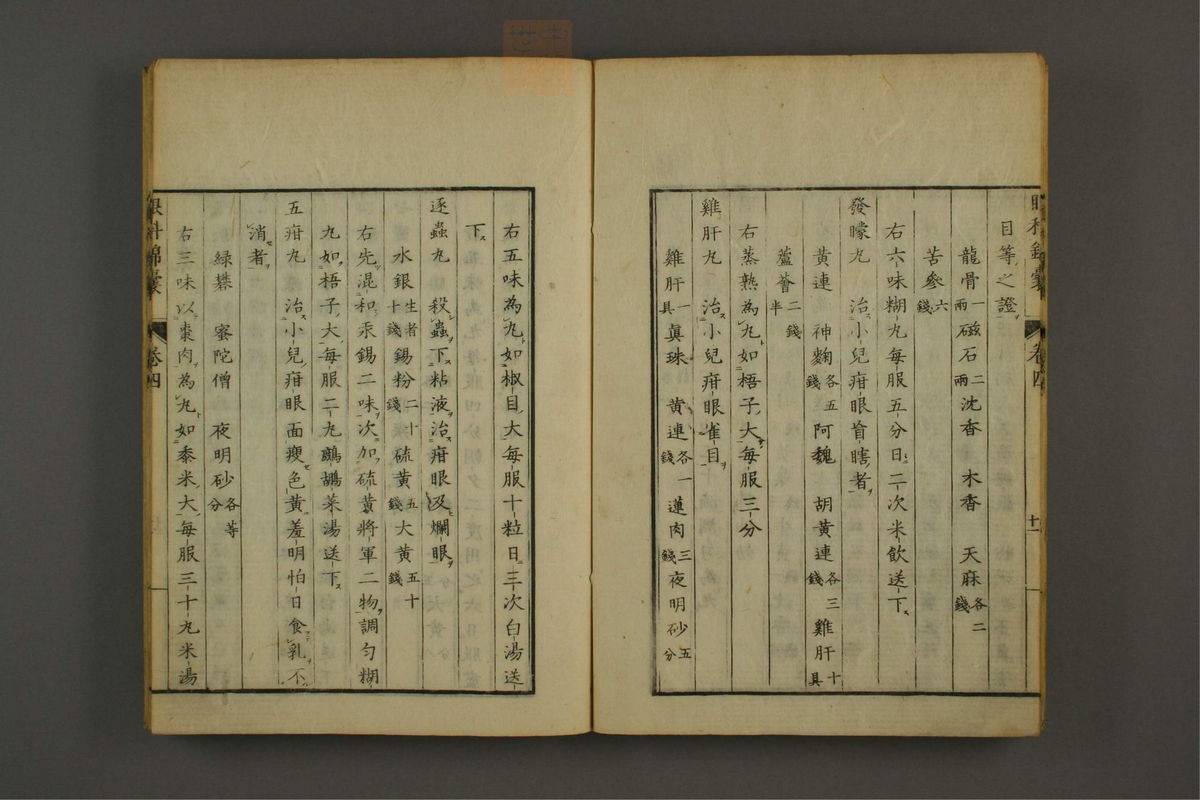 眼科錦囊 卷四 十一
目等之證ヲ
龍骨一兩 磁石二兩 沈香 木香 天麻各二錢
苦參六錢
右六味糊丸每服五分日二次米飲送下ス
發矇丸 治小兒疳眼盲瞎者ヲ
黃連 神麴各五錢 阿魏 胡黃連各三錢 雞肝十具
蘆薈二錢半
右蒸熟為丸如梧子大每服三分
雞肝丸 治小兒疳眼雀目ヲ
雞肝一具 眞珠 黃連各一錢 蓮肉三錢 夜明砂五分
右五味為丸如椒目大每服十粒日三次白湯送
下ス
逐蟲丸 殺蟲下粘液治疳眼及爛眼ヲ
水銀生者十錢 錫粉二十錢 硫黃五錢 大黃五十錢
右先混和汞錫二味次加硫黃將軍二物調勻糊
丸如梧子大每服二丸鷓鴣菜湯送下ス
五疳丸 治小兒疳眼面瘦色黃羞明怕日食乳不
消者ヲ
綠礬 蜜陀僧 夜明砂各等分
右三味以棗肉為丸如黍米大每服三十丸米湯
眼科錦囊 卷四